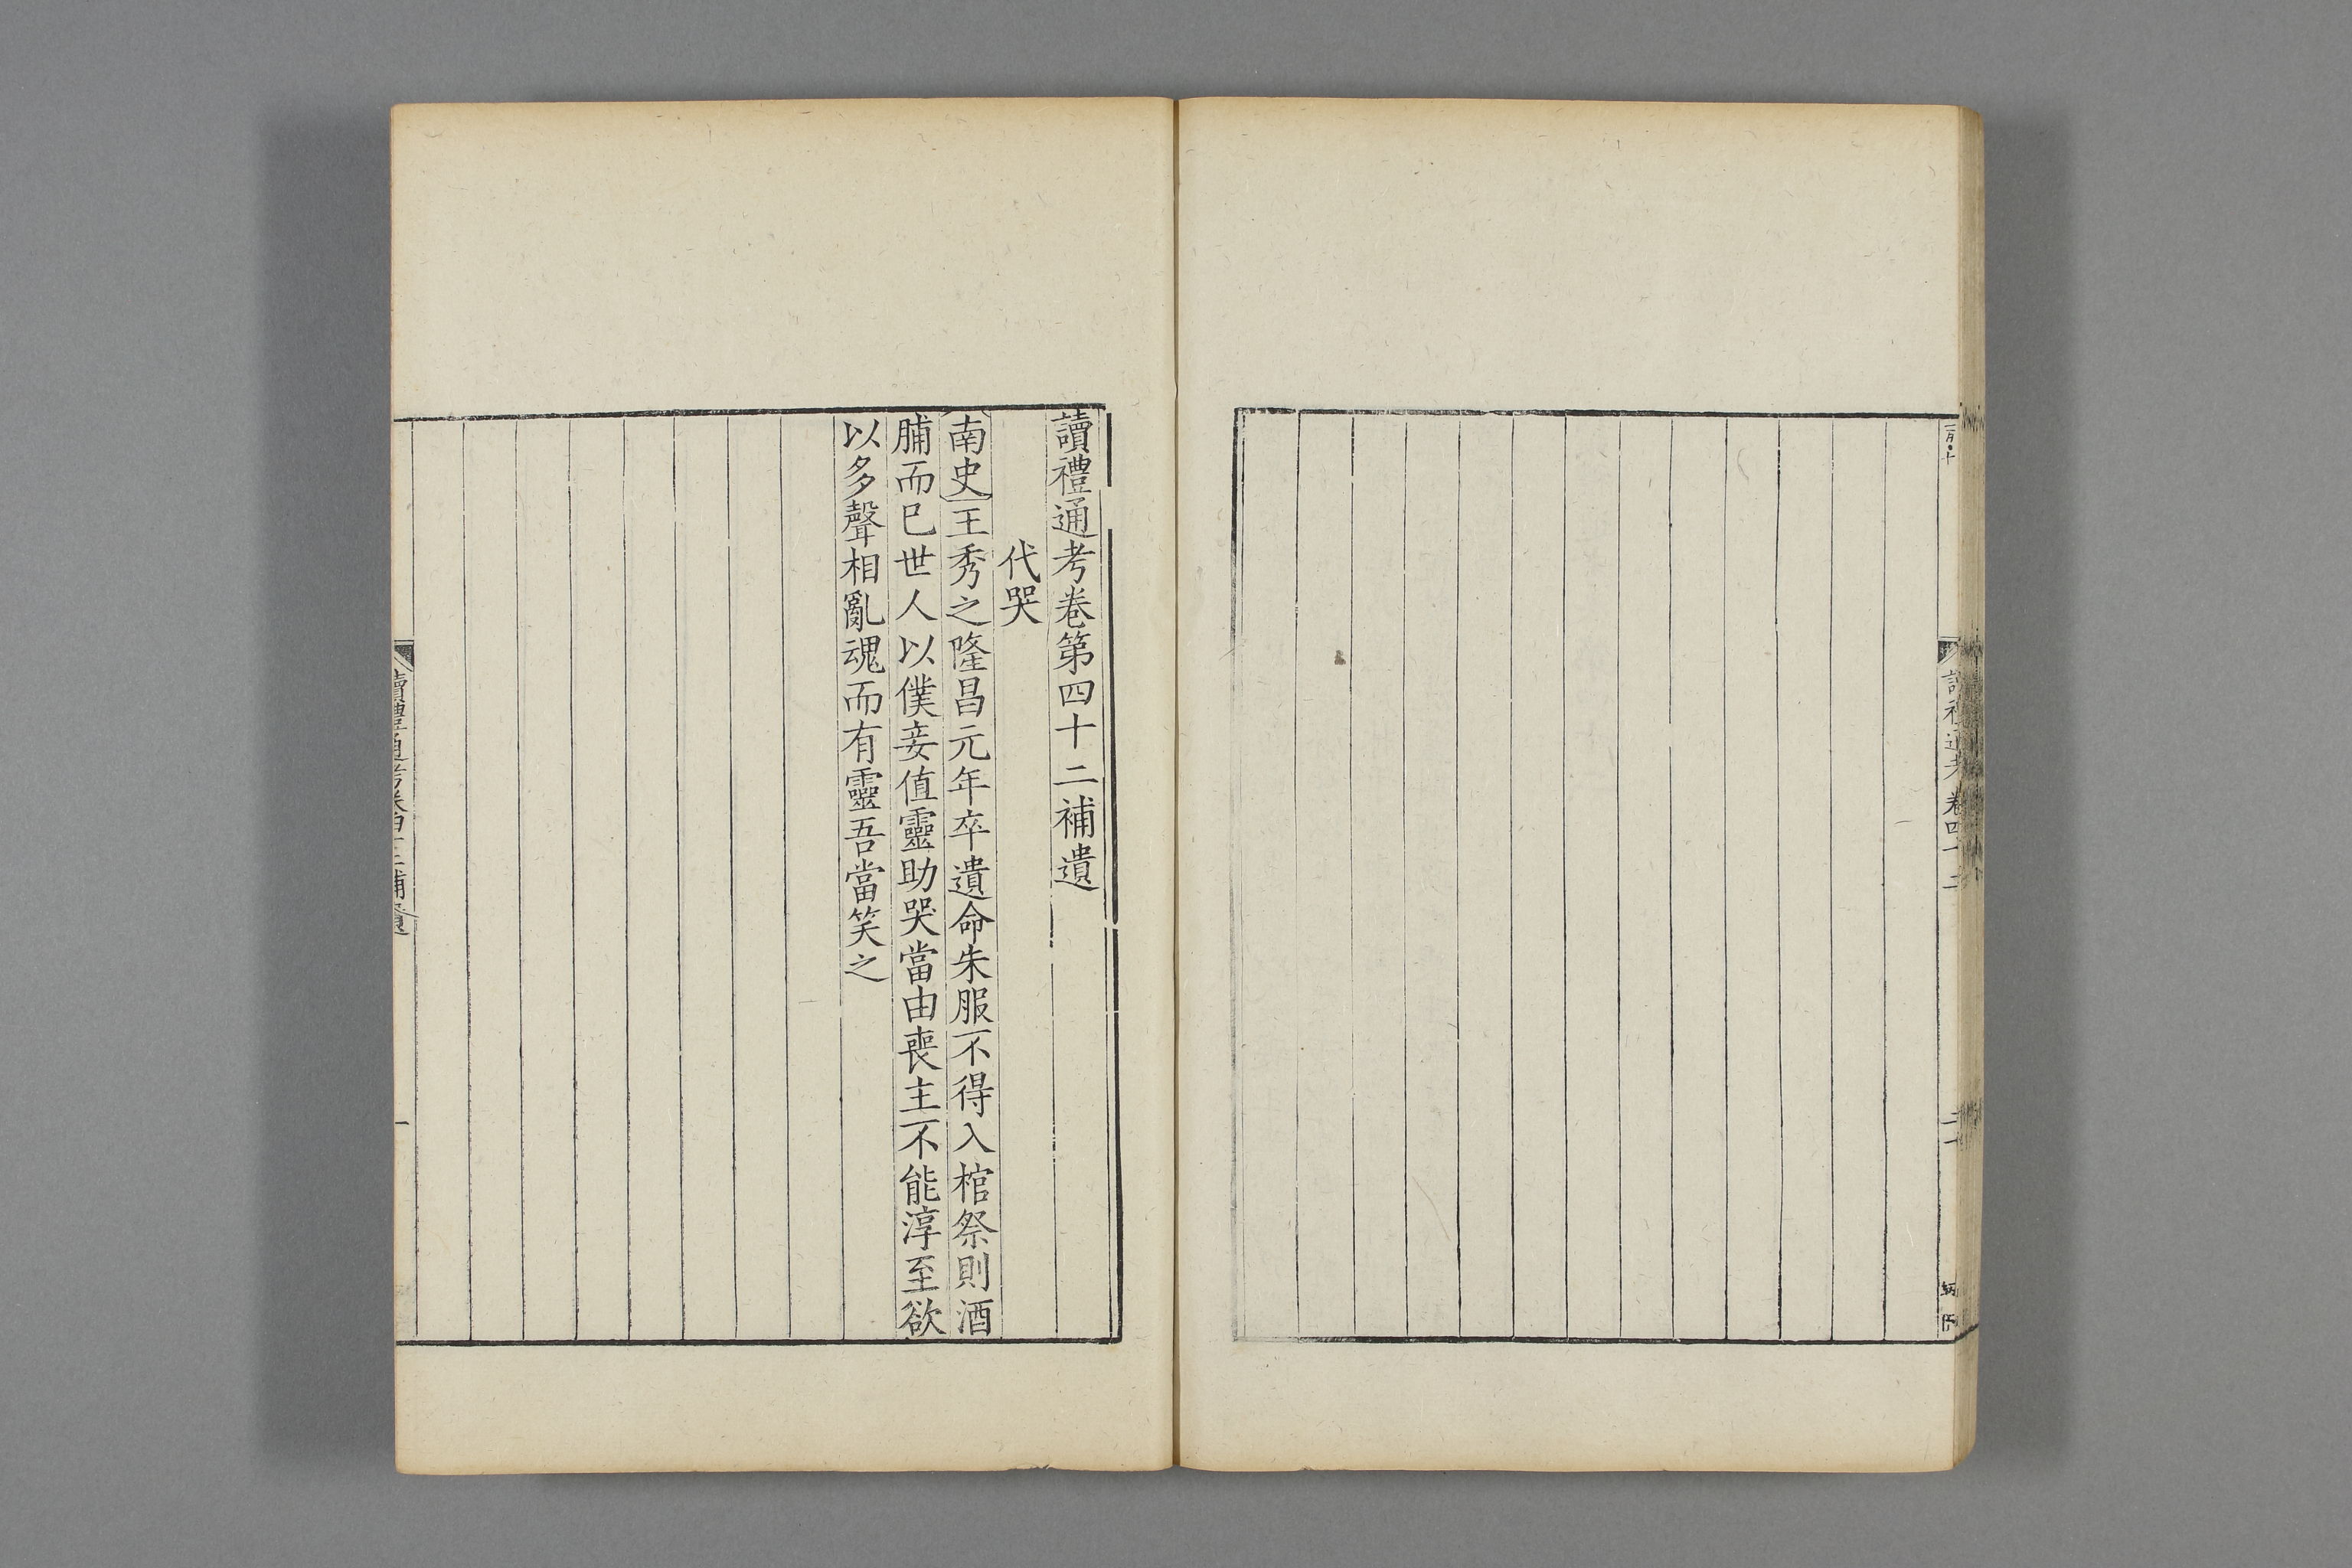 讀禮通考 卷四十二
二十
讀禮通考卷第四十二補遺
代哭
南史王秀之隆昌元年卒遺命朱服不得入棺祭則酒
脯而已世人以僕妾值靈助哭當由喪主不能淳至欲
以多聲相亂魂而有靈吾當笑之
讀禮通考卷四十二補遺
一